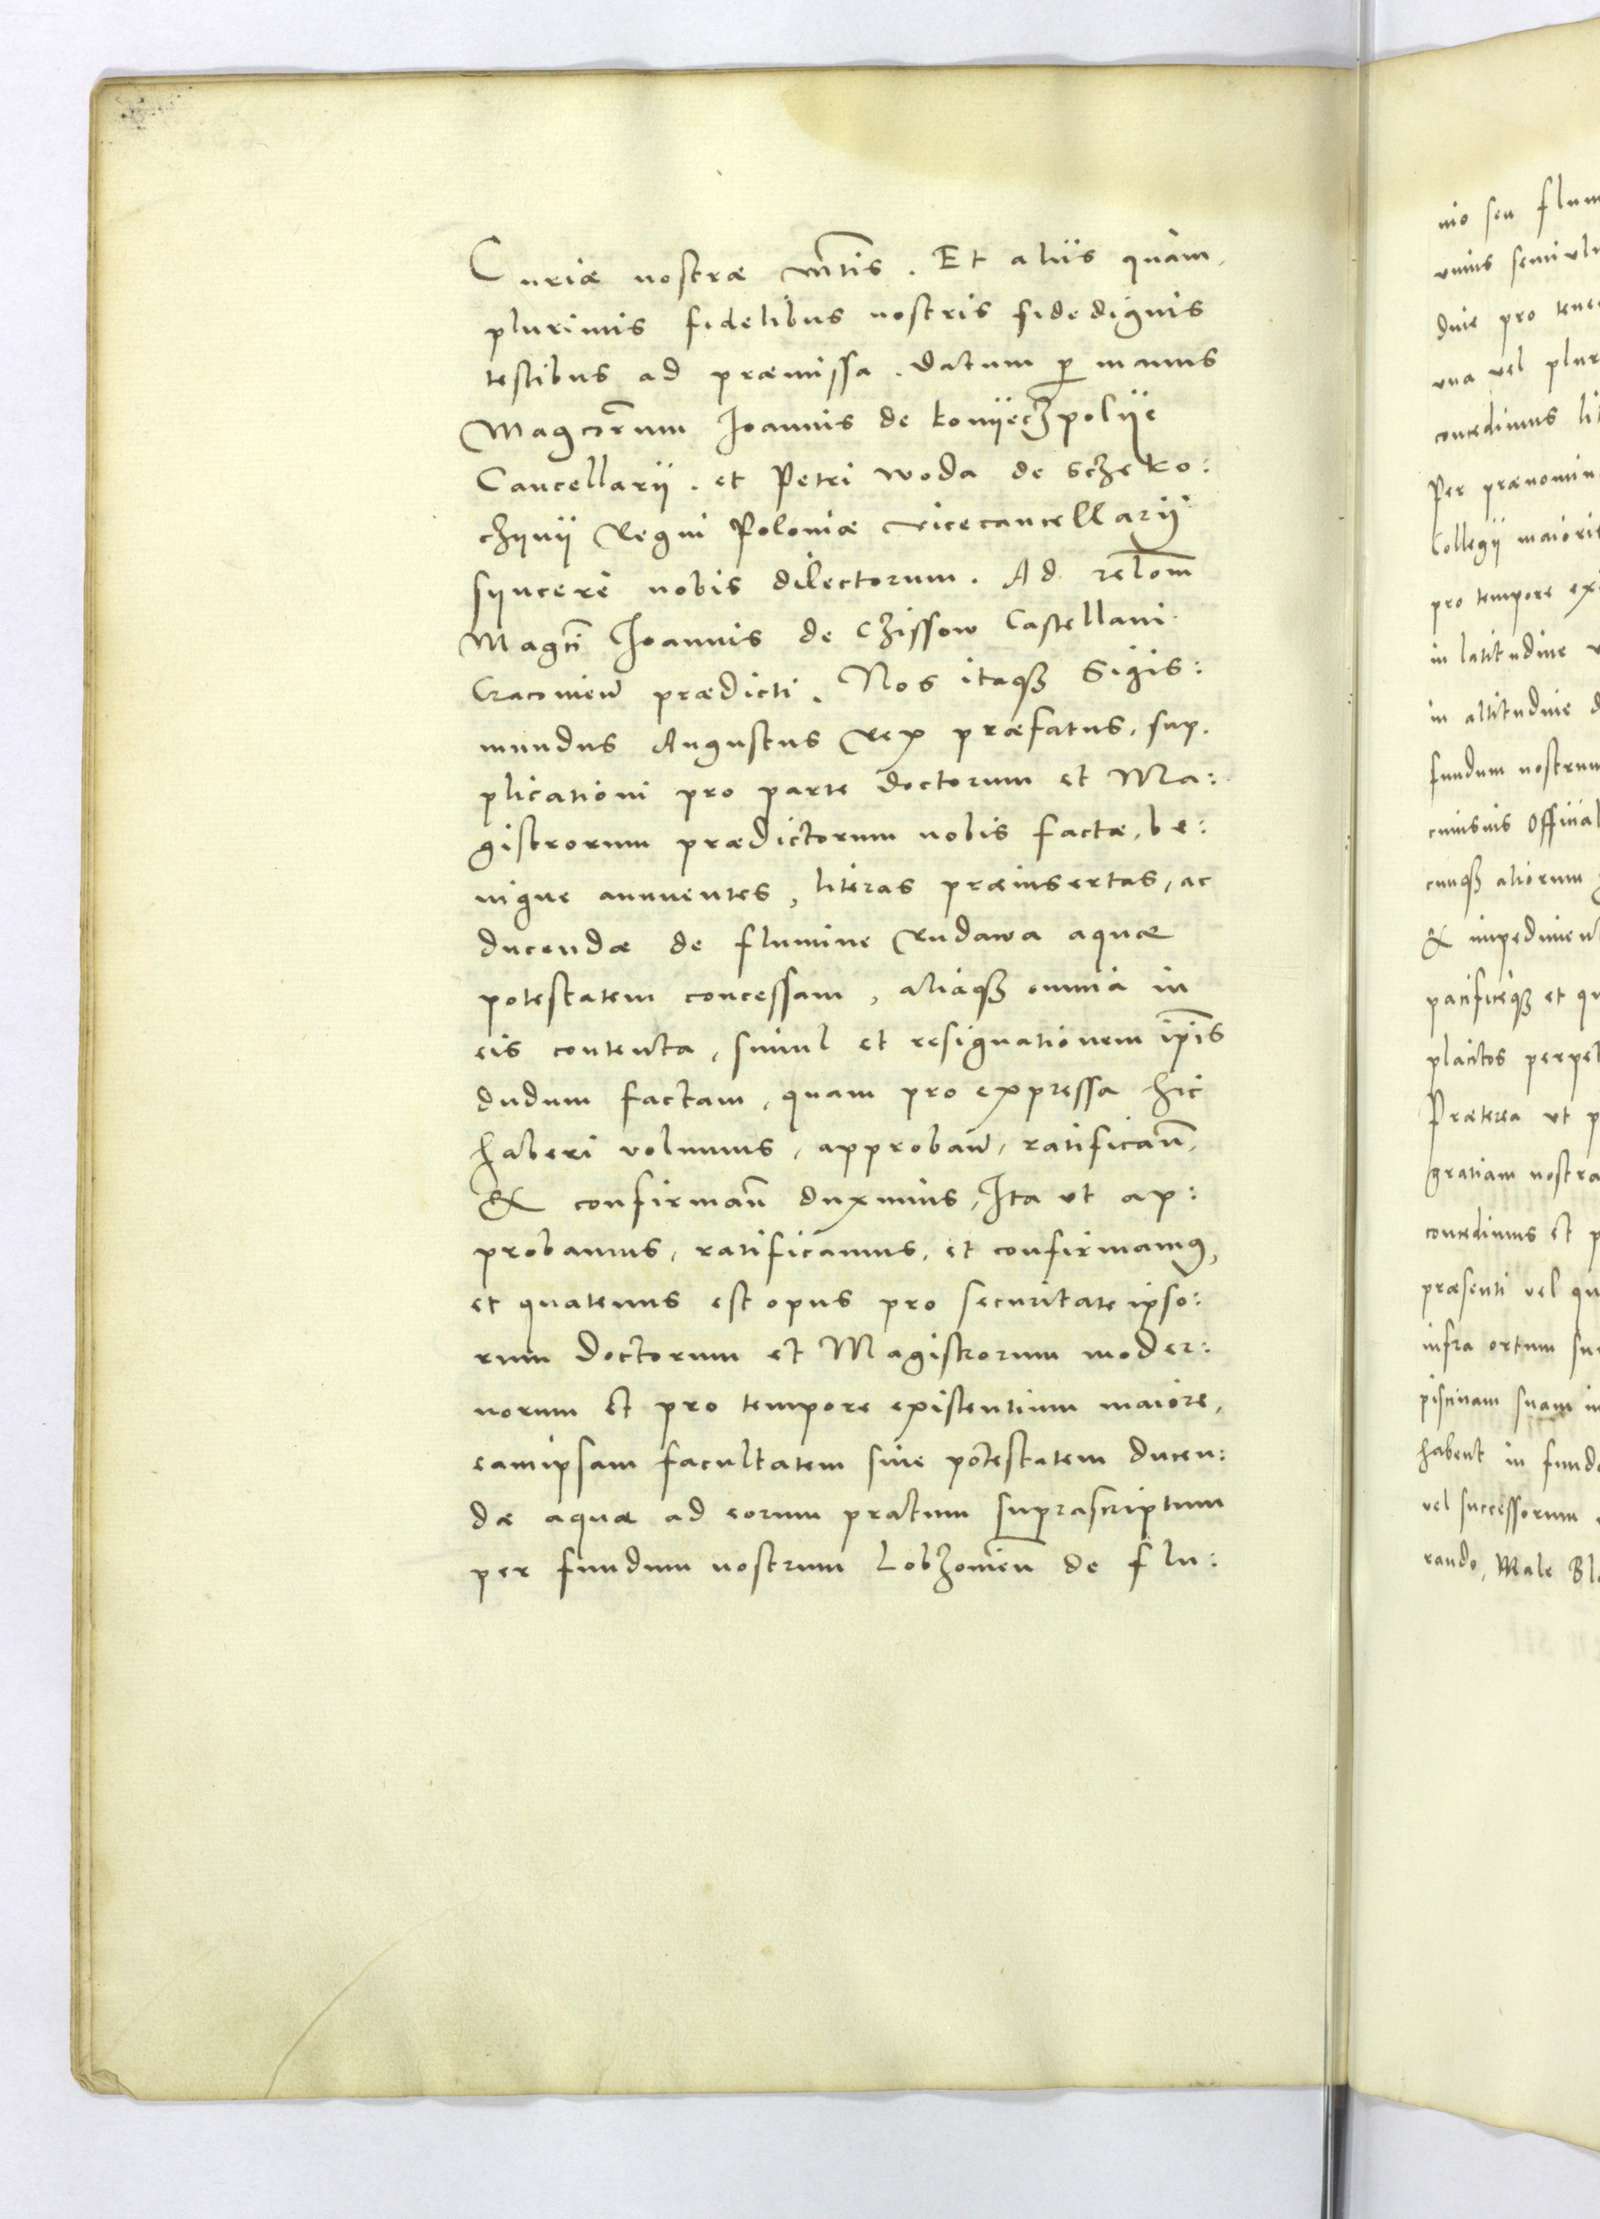 Curiæ nostræ Mr̃tis. Et aliis quam,
plurimis fidelibus nostris fidedignis
testibus ad præmissa. Datum p̱ manus
Magcorũm Joannis de Konÿeczpolÿe
Cancellarÿ. et Petri Woda de Sczeko:
czÿnÿ Regni Poloniæ Vicecancellarÿ
sÿncerè nobis dilectorum. Ad relõm
Magcĩ Joannis de Czissow Castellani
Cracovieñ prædicti. Nos itaqꝫ Sigis:
mundus Augustus Rex præfatus, sup.
plicationi pro parte Doctorum et Ma:
gistrorum prædictorum nobis factæ, be:
nigne annuentes, literas præinsertas, ac
ducendæ de flumine Rudawa aquæ
potestatem concessam, aliaqꝫ omnia in
eis contenta, simul et resignationem ip̃is
dudum factam, quam pro expressa hic
haberi volumus, approbañ, ratificañ,
& confirmañ duximus, Ita ut ap:
probamus, ratificamus, et confirmamꝰ,
et quatenus est opus pro securitate ipso:
rum Doctorum et Magistrorum moder:
norum et pro tempore existentium maiore,
eamipsam facultatem sive potestatem ducen:
dæ aquæ ad eorum pratum suprascriptum
per fundum nostrum Lobzovieñ de flu:
nio seu flum
unius semiuln
dine pro tene
una vel plur
concedimus li
Per prænomin
Collegÿ maioris
pro tempore exi
in latitudine
in altitudine
fundum nostrum
cuiusvis Official
cunqꝫ aliorum
& impediment
pacificeqꝫ et qu
placitos perpet
Præterea ut p
gratiam nostra
concedimus et p
præsenti vel qu
infra ortum su
piscinam suam in
habent in fundo
vel successorum
rando, Male Bl